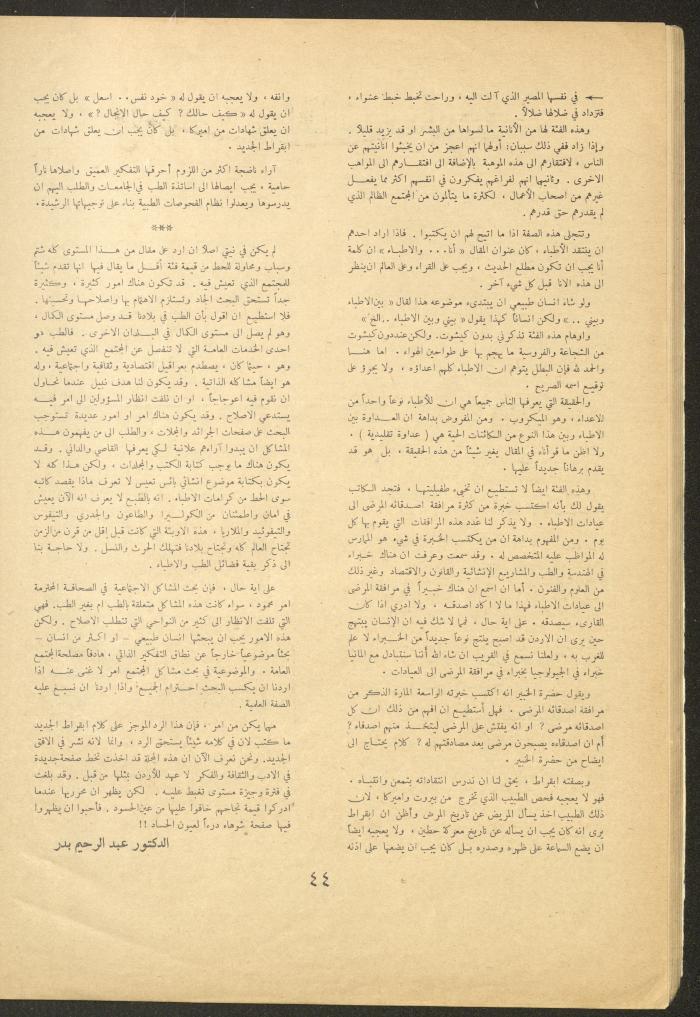 ← في نفسها المصير الذي آلت اليه ، وراحت تخبط خبط عشواء ،
فتزداد في ضلالها ضلالاً .
وهذه الفئة لها من الأنانية ما لسواها من البشر او قد يزيد قليلا .
وإذا زاد ففي ذلك سببان : أولهما انهم اعجز من ان يخبئوا انانيتهم عن
الناس ، لافتقارهم الى هذه الموهبة بالإضافة الى افتقـــارهم الى المواهب
الاخرى . وثانيهما انهم لفراغهم يفكرون في انفسهم اكثر مما يفعـــل
غيرهم من اصحاب الأعمال ، لكثرة ما يتألمون من المجتمع الظالم الذي
لم يقدرهم حق قدرهم .
وتتجلى هذه الصفة اذا ما اتيح لهم ان يكتبوا . فاذا اراد احدهم
ان ينتقد الأطباء ، كان عنوان المقال « أنا ... والاطبـاء » ان كلمة
أنا يجب ان تكون مطلع الحديث ، ويجب على القراء وعلى العالم ان ينظر
الى هذه الانا قبل كل شيء آخر .
ولو شاء انسان طبيعي ان يبتدىء موضوعه هذا لقال « بين الاطباء
وبيني .. » ولكن انساناً كهذا يقول « بيني وبين الاطباء .. الخ »
واوهام هذه الفئة تذكرني بدون كيشوت . ولكن عند دون كيشوت
من الشجاعة والفروسية ما يهجم بها على طواحين الهواء . اما هنـــا
والحمد لله فإن البطل يتوهم ان الاطباء كلهم اعداؤه ، ولا يجرؤ على
توقيع اسمه الصريح .
والحقيقة التي يعرفها الناس جميعاً هي ان للأطباء نوعاً واحداً من
الاعداء ، وهو الميكروب . ومن المفروض بداهة ان العـداوة بين
الاطباء وبين هذا النوع من الكائنات الحية هي ( عداوة تقليدية ) .
ولا اظن ما قرأناه في المقال يغير شيئاً من هذه الحقيقة ، بل هو قد
يقدم برهاناً جديداً عليها .
وهذه الفئة ايضاً لا تستطيـع ان تخبىء طفيليتهـا ، فتجد الكاتب
يقول لك بأنه اكتسب خبرة من كثرة مرافقة اصدقائه المرضى الى
عيادات الاطباء . ولا يذكر لنا عدد هذه المرافقات التي يقوم بها كل
يوم . ومن المفهوم بداهة ان من يكتسب الخبرة في شيء هو الممارس
له المواظب عليه المتخصص له . وقد سمعت وعرفت ان هناك خبـراء
في الهندسة والطب والمشاريع الإنشائية والقانون والاقتصاد وغير ذلك
من العلوم والفنون . أما ان اسمع ان هناك خبيـراً في مرافقة المرضى
الى عيادات الاطباء فهذا ما لا اكاد اصدقـه ، ولا ادري اذا كان
القارىء سيصدقه . على اية حال ، فمما لا شك فيه ان الإنسان يبتهج
حين يرى ان الاردن قد اصبح ينتج نوعاً جديداً من الخبراء لا علم
للغرب به ، ولعلنا نسمع في القريب ان شاء الله أننا سنتبادل مع المانيا
خبراء في الجيولوجيا بخبراء في مرافقة المرضى الى العيادات .
ويقول حضرة الخبير انه اكتسب خبرته الواسعة المارة الذكر من
مرافقة اصدقائه المرضى . فهل أستطيـع ان افهم من ذلك ان كل
اصدقائه مرضى ؟ او انه يفتش على المرضى ليتخـذ منهم اصدقاء ؟
أم ان اصدقاءه يصبحون مرضى بعد مصادقتهم له ؟ كلام يحتـاج الى
ايضاح من حضرة الخبير .
وبصفته ابقراط ، يحق لنا ان ندرس انتقاداته بتمعن وانتبـاه .
فهو لا يعجبه فحص الطبيب الذي تخرج من بيروت واميركا ، لان
ذلك الطبيب اخذ يسأل المريض عن تاريخ المرض وأظن ان ابقراط
يرى انه كان يجب ان يسأله عن تاريخ معركة حطين ، ولا يعجبه ايضاً
ان يضع السماعة على ظهره وصدره بـل كان يجب ان يضعها على اذنه
وانفه ، ولا يعجبه ان يقول له « خود نفس .. اسعل » بل كان يجب
ان يقول له « كيف حالك ؟ كيف حال الانجال ؟ » ، ولا يعجبه
ان يعلق شهادات من اميركا ، بل كان يجب ان يعلق شهادات من
ابقراط الجديد .
آراء ناضجة اكثر من اللزوم أحرقها التفكير العميق واصلاها ناراً
حامية . يجب ايصالها الى اساتذة الطب في الجامعـات والطلب اليهم ان
يدرسوها ويعدلوا نظام الفحوصات الطبية بناء على توجيهاتها الرشيدة .
***
لم يكن في نيتي اصلاً ان ارد على مقال من هـــذا المستوى كله شتم
وسباب ومحاولة للحط من قيمة فئة أقـــل ما يقال فيها انها تقدم شيئاً
للمجتمع الذي تعيش فيه . قد تكون هناك امور كثيرة ، وكثيرة
جداً تستحق البحث الجاد وتستلزم الاهتمام بها واصلاحهـا وتحسينها .
فلا استطيع ان اقول بأن الطب في بلادنا قـد وصل مستوى الكمال ،
وهو لم يصل الى مستوى الكمال في البـــلدان الاخرى . فالطب هو
احدى الخدمات العامة التي لا تنفصل عن المجتمع الذي تعيش فيه .
وهو ، حيثما كان ، يصطدم بعراقيل اقتصادية وثقافية واجتماعية ، وله
هو ايضاً مشاكله الذاتية . وقد يكون لنا هدف نبيل عندما نحـاول
ان نقوم فيه اعوجاجاً ، او ان نلفت انظار المسؤولين الى امر فيـــه
يستدعي الاصلاح . وقد يكون هناك امر او امور عديدة تستوجب
البحث على صفحات الجرائد والمجلات ، والطلب الى من يفهمون هــذه
المشاكل ان يبدوا آراءهم علانية لكي يعرفها القاصي والداني . وقـد
يكون هناك ما يوجب كتابة الكتب والمجلدات ، ولكن هــذا كله لا
يكون بكتابة موضوع انشائي بائس تعيس لا تعرف ماذا يقصد كاتبه
سوى الحط من كرامات الاطباء . انه بالطبع لا يعرف انه الآن يعيش
في امان واطمئنان من الكوليرا والطاعون والجدري والتيفوس
والتيفوئيد والملاريا ، هذه الاوبئة التي كانت قبل اقل من قرن من الزمن
تجتاح العالم كله وتجتاح بلادنا فتهلك الحرث والنسل . ولا حاجـة بنا
الى ذكر بقية فضائل الطب والاطباء .
على اية حال ، فإن بحث المشاكل الاجتماعية في الصحافـة المحترمة
امر محمود ، سواء كانت هذه المشاكل متعلقة بالطب ام بغير الطب. فهي
التي تلفت الانظار الى كثير من النواحي التي تتطلب الاصلاح . ولكن
هذه الامور يجب ان يبحثها انسان طبيعي – او اكثر من انسان –
بحثاً موضوعياً خارجاً عن نطاق التفكير الذاتي ، هادفاً مصلحة المجتمع
العامة . والموضوعية في بحث مشاكل المجتمع امر لا غنى عنـــه اذا
اردنا ان يكسب البحث احتـرام الجميـع واذا اردنا ان نسبـغ عليه
الصفة العلمية .
مهما يكن من امر ، فإن هذا الرد الموجز على كلام ابقراط الجديد
ما كتب لان في كلامه شيئاً يستحق الرد ، وانما لانه نشر في الافق
الجديد. ونحن نعرف الآن ان هذه المجلة قد اخذت تخط صفحة جديدة
في الادب والثقافة والفكر لا عهد للأردن بمثلها من قبل . وقد بلغت
في فترة وجيزة مستوى تغبط عليــه . لكن يظهر ان محرريها عندما
ادركوا قيمة نجاحهم خافوا عليها من عين الحسود . فأحبوا ان يظهروا
فيها صفحة شوهاء درءاً لعيون الحساد !!
الدكتور عبد الرحيم بدر
٤٤